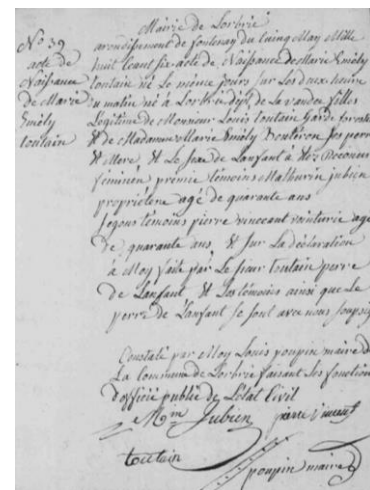 Mairie de Lorbrie
N° 39
acte de
Naissance
de Marie
Emély
toutain
arondissement de fontenay du cuinq May Mille
huit Ceant six acte de Naissance de Marie Emély
toutain né Le meme jours sur Les deux heure
du matin né a Lorbrie de La vandee filles
Legitime de Monsieur Louis toutain Garde forestie
& de Madamme Marie Emély Boutiron Ses perre
& Mere & Le Sexe de Lanfant à été Reconnu
féminen premie témoins Mathurin jubien
proprietere agé de quarante ans
segons témoins pierre vinceant voiturie agé
de quarante ans & sur La déclaration
à Moy faite par Le sieur toutaire perre
de Lanfant & Les témoins ainsi que Le
perre de Lanfant se sont avec nous soupsig
Constaté par Moy Louis poupin maire de
La Commune de Lorbrie faisant les fonction
d'officié public de L'état Civil
Mm Jubien pierre vincent
toutain
poupin maire